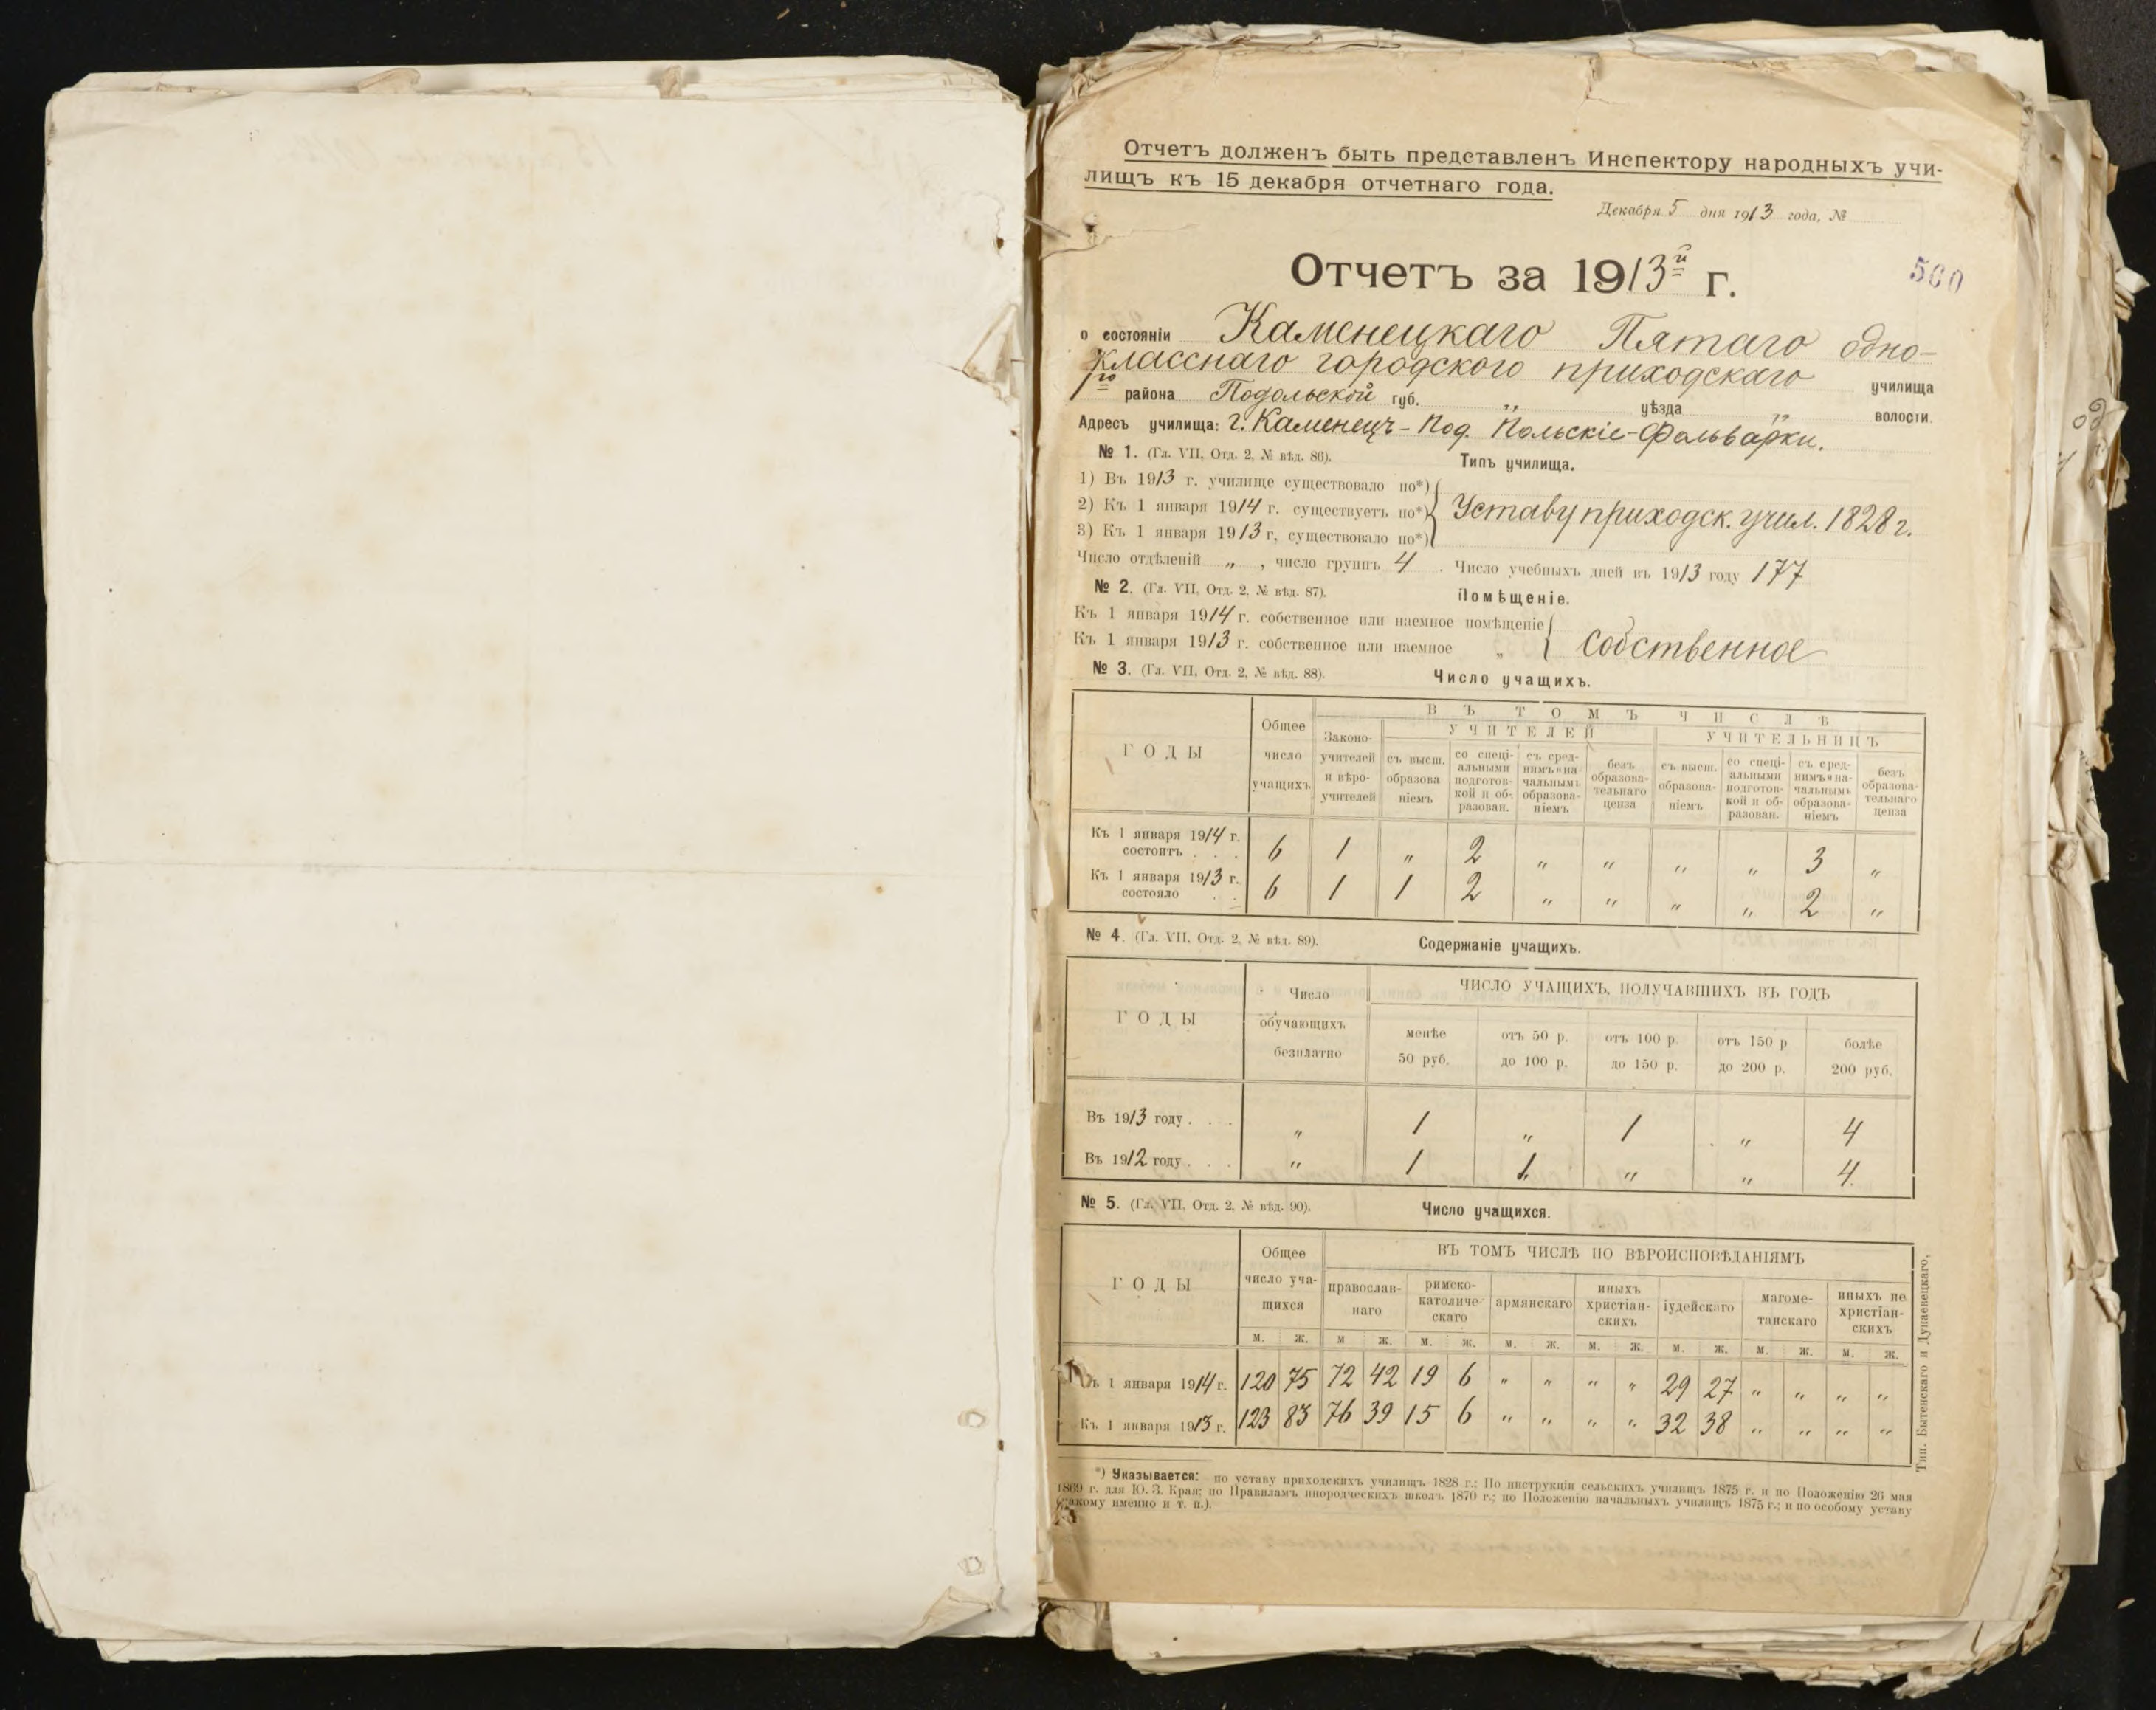 Отчетъ долженъ быть представленъ Инспектору народныхъ учи-
лищъ къ 15 декабря отчетнаго года.
Декабря 5 дня 1913 года, №
Отчетъ за 1913й г.
500
о состояніи Каменецкаго Пятаго одно-
класснаго городского приходскаго училища
1го района Подольской губ. „ уѣзда „ волости.
Адресъ училища: г. Каменецъ-Под. Польскіе-Фольварки.
№ 1. (Гл. VII, Отд. 2, № вѣд. 86). Типъ училища.
1) Въ 1913 г. училище существовало по*)
2) Къ 1 января 1914 г. существуетъ по*) Уставу приходск. учил. 1828 г.
3) Къ 1 января 1913 г. существовало по*)
Число отдѣленій „ , число группъ 4 . Число учебныхъ дней въ 1913 году 177
№ 2. (Гл. VII, Отд. 2, № вѣд. 87). Помѣщеніе.
Къ 1 января 1914 г. собственное или наемное помѣщеніе
Къ 1 января 1913 г. собственное или наемное „ Собственное
№ 3. (Гл. VII, Отд. 2, № вѣд. 88). Число учащихъ.
ГОДЫ
Общее число учащихъ
ВЪ ТОМЪ ЧИСЛѢ
Законо-учителей и вѣро-учителей
УЧИТЕЛЕЙ
УЧИТЕЛЬНИЦЪ
съ высш. образова ніемъ
со спеці-альными подготов-кой и об-разован.
съ сред-нимъ и на-чальнымъ образова-ніемъ
безъ образова-тельнаго ценза
съ высш. образова-ніемъ
со спеці-альными подготов-кой и об-разован.
съ сред-нимъ и на-чальнымъ образова-ніемъ
безъ образова-тельнаго ценза
Къ 1 января 1914 г. состоитъ . . . 6 1 „ 2 „ „ „ „ 3 „
Къ 1 января 1913 г. состояло . . 6 1 1 2 „ „ „ „ 2 „
№ 4. (Гл. VII, Отд. 2, № вѣд. 89). Содержаніе учащихъ.
ГОДЫ
Число обучающихъ безплатно
ЧИСЛО УЧАЩИХЪ, ПОЛУЧАВШИХЪ ВЪ ГОДЪ
менѣе 50 руб.
отъ 50 р. до 100 р.
отъ 100 р. до 150 р.
отъ 150 р до 200 р.
болѣе 200 руб.
Въ 1913 году . . . „ 1 „ 1 „ 4
Въ 1912 году . . . „ 1 1 „ „ 4.
№ 5. (Гл. VII, Отд. 2, № вѣд. 90). Число учащихся.
ГОДЫ
Общее число уча-щихся
ВЪ ТОМЪ ЧИСЛѢ ПО ВѢРОИСПОВѢДАНІЯМЪ
православ-наго
римско-католиче-скаго
армянскаго
иныхъ христіан-скихъ
іудейскаго
магоме-танскаго
иныхъ не христіан-скихъ
м. ж. м ж. м. ж. м. ж. м. ж. м. ж. м. ж. м. ж.
Къ 1 января 1914 г. 120 75 72 42 19 6 „ „ „ „ 29 27 „ „ „ „
Къ 1 января 1913 г. 123 83 76 39 15 6 „ „ „ „ 32 38 „ „ „ „
*) Указывается: по уставу приходскихъ училищъ 1828 г.; По инструкціи сельскихъ училищъ 1875 г. и по Положенію 26 мая
1869 г. для Ю. З. Края; по Правиламъ инородческихъ школъ 1870 г.; по Положенію начальныхъ училищъ 1875 г.; и по особому уставу
(какому именно и т. п.).
Тип. Бытенскаго и Дунаевецкаго,